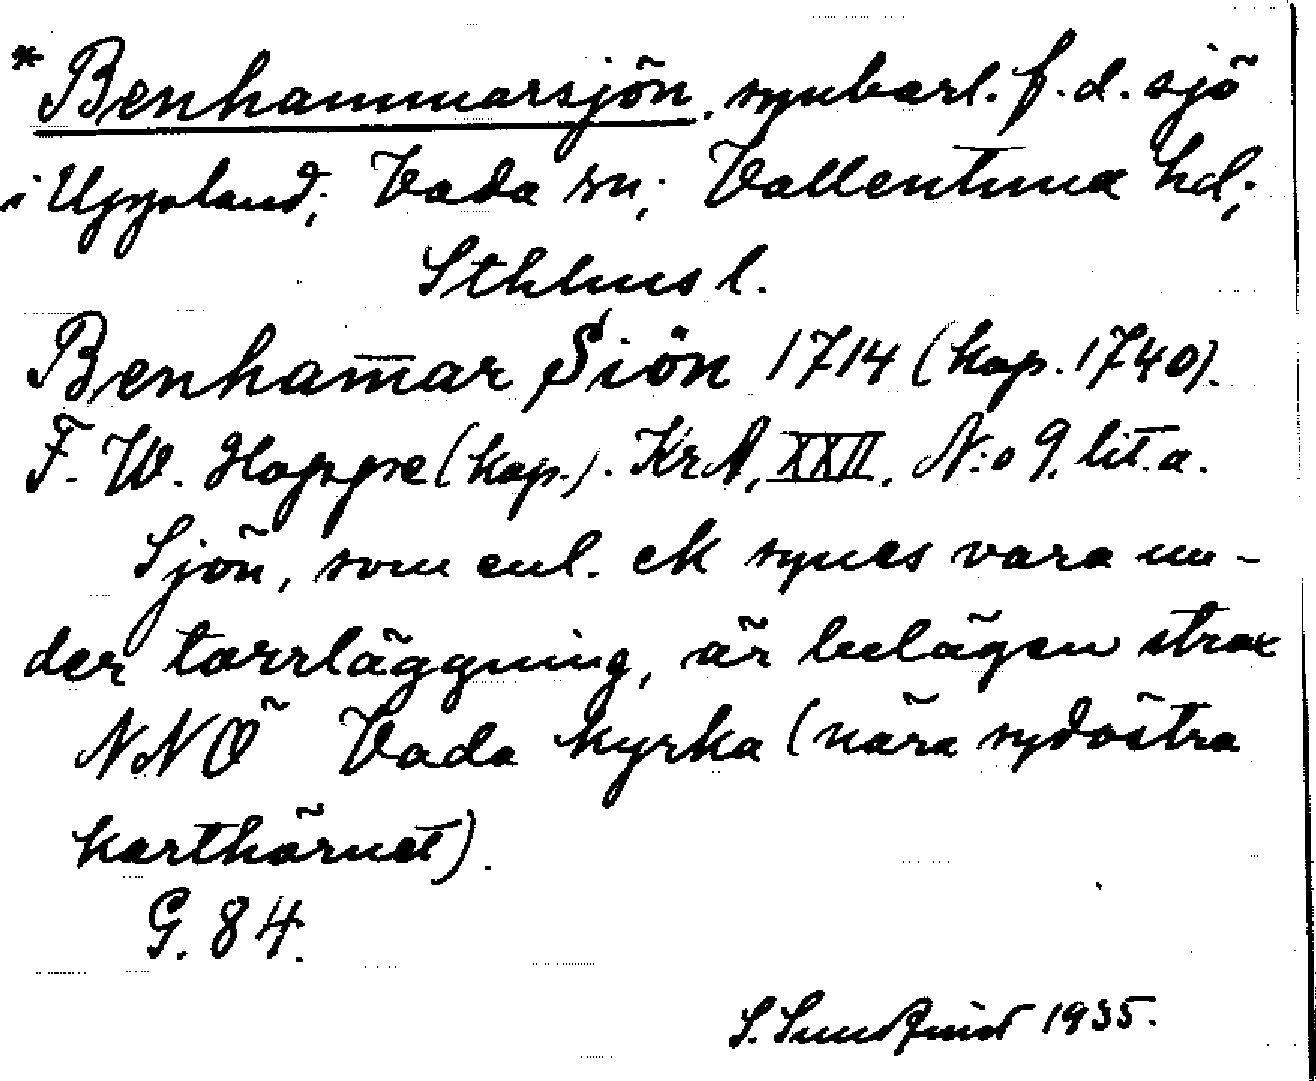 *Benhammarsjön, synbarl. f.d. sjö
i Uppland; Vada sn; Vallentuna hd;
Sthlms l.
Benham̄ar Siön 1714 (kop. 1740).
F. W. Hoppe (kop.). KrA, XXII, N:o 9. lit. a.
Sjön, som enl. ek synes vara un-
der torrläggning, är belägen strax
NNÖ Vada kyrka (nära sydöstra
karthörnet).
G. 84.
S. Sundquist 1935.